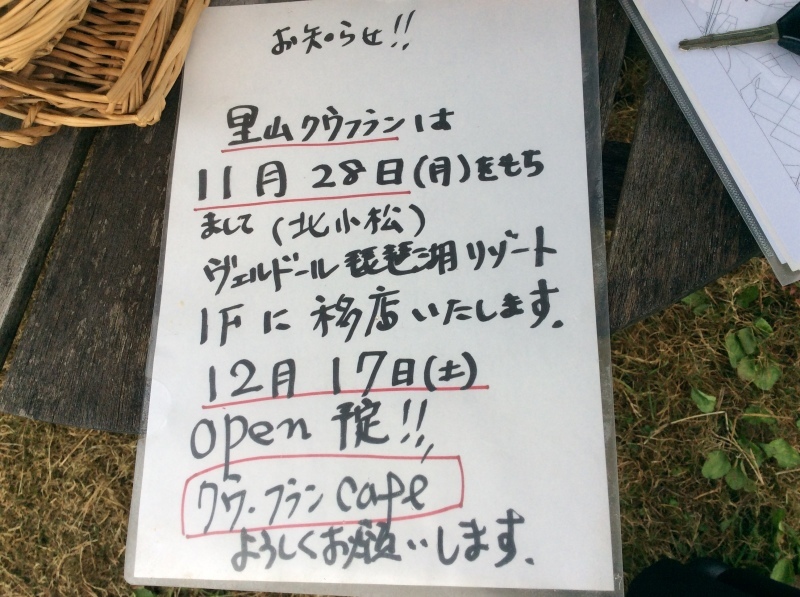 お知らせ!!
里山クウフランは
11月28日(月)をもち
まして(北小松)
ヴェルドール琵琶湖リゾート
1Fに移店いたします.
12月17日(土)
open予定!!
クウ・フランcafe
よろしくお願いします.